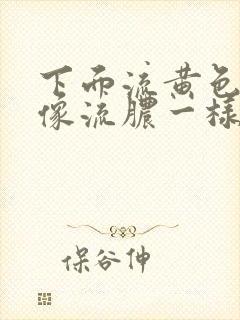 下而流黄色
像流脓一样
保谷伸